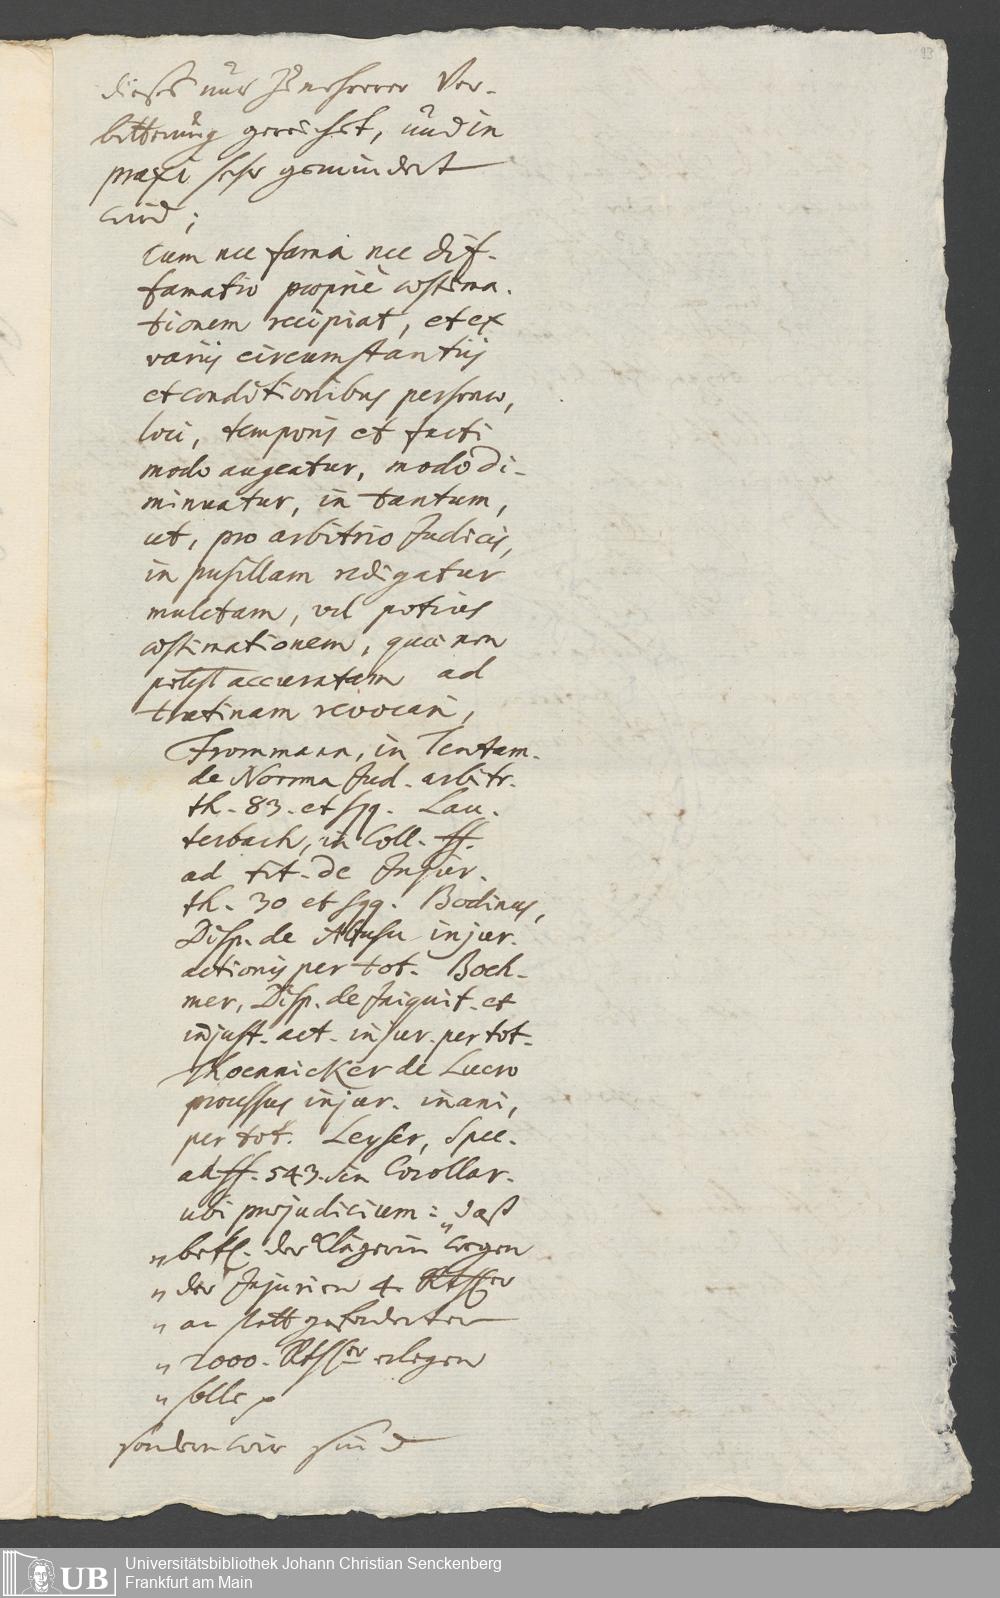 93
dieses nur zu mehrerer Ver-
bitterung gereichet, und in
praxi sehr gemindert
wird;
cum nec fama nec dif-
famatio propriè aestima-
tionem recipiat, et ex
variis circumstantiis
et conditionibus personae,
loci, temporis et facti
modo augeatur, modò di-
minuatur, in tantum,
ut, pro arbitrio Judicis,
in pusillam redigatur
mulctam, vel potius
aestimationem, quae non
potest accuratam ad
trutinam revocari,
Frommann, in Tentam.
de Norma Jud. arbitr.
th. 83. et sqq. Lau-
terbach, in Coll. ff.
ad tit. de Injur.
th. 30 et sqq. Bodinus,
Disp. de Abusu injur.
actionis per tot. Boeh-
mer, Disp. de Iniquit. et
injust. act. injur. per tot.
Thoennicker de Lucro
processus injur. inani,
per tot. Leyser, Spec.
ad ff. 543. in Corollar.
ubi praejudicium: „daß
„bekl. der Klägerin wegen
„der Injurien 4. Rthlr
„an statt geforderter
„2000. Rthlr erlegen
„solle
sondern wir sind
UB Universitätsbibliothek Johann Christian Senckenberg
Frankfurt am Main